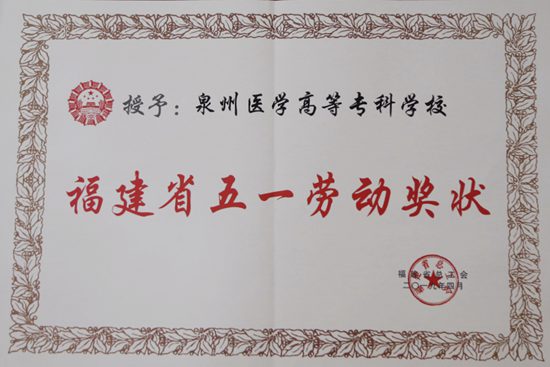 授予：泉州医学高等专科学校
福建省五一劳动奖状
福建省总工会
二〇一九年四月